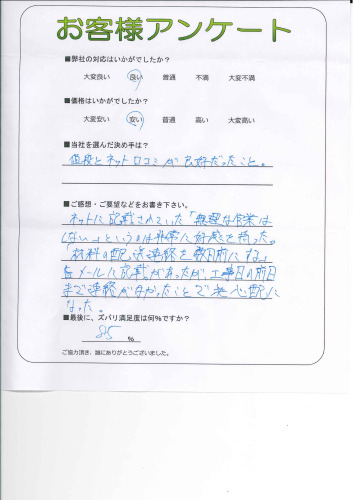 お客様アンケート
■弊社の対応はいかがでしたか？
大変良い 良い 普通 不満 大変不満
■価格はいかがでしたか？
大変安い 安い 普通 高い 大変高い
■当社を選んだ決め手は？
値段とネット口コミが良好だったこと。
■ご感想・ご要望などをお書き下さい。
ネットに記載されていた「無理な営業は
しない」というのは非常に好感を持った。
材料の配送連絡を数日前にする
旨メールに記載があったが、工事日の前日
まで連絡がなかったことで決心配に
なった。
■最後に、ズバリ満足度は何％ですか？
85 %
ご協力頂き、誠にありがとうございました。